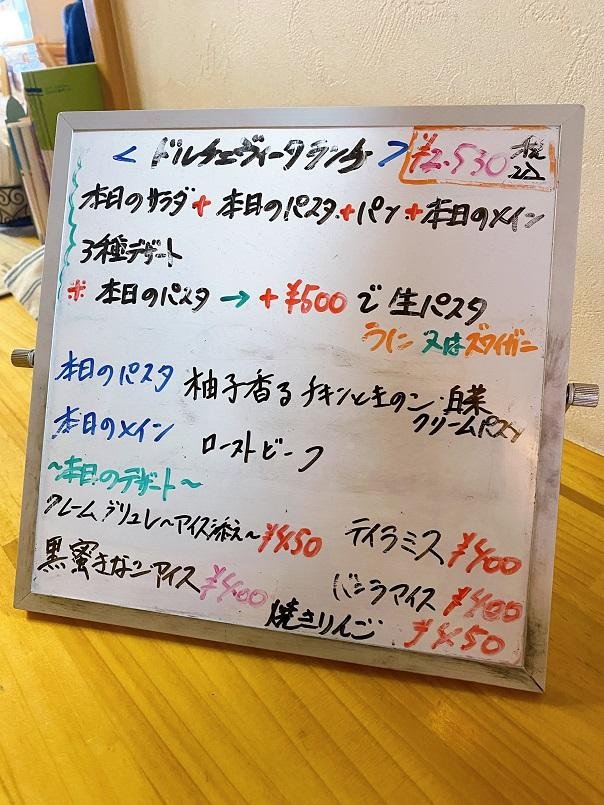 < ドルチェヴィータランチ > ¥2.530 税込
本日のサラダ + 本日のパスタ + パン + 本日のメイン
3種デザート
※ 本日のパスタ → +¥500 で 生パスタ
うに 又は ズワイガニ
本日のパスタ 柚子香る チキンときのこ・白菜
クリームパスタ
本日のメイン ローストビーフ
~本日のデザート~
クレームブリュレ~アイス添え~ ¥450 ティラミス ¥400
黒蜜きなこアイス ¥400 バニラアイス ¥400
焼きりんご ¥450